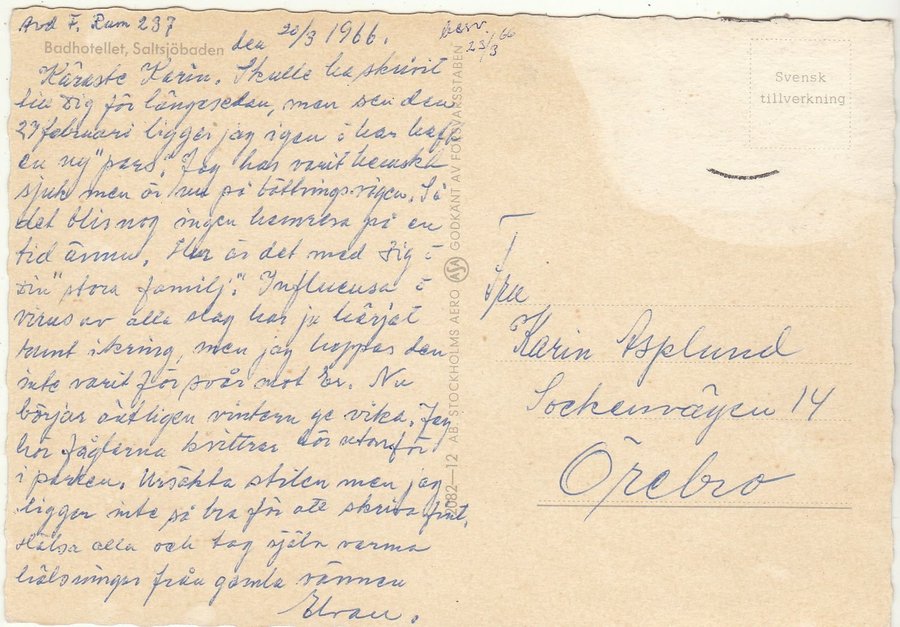 Avd F. Rum 237
Badhotellet, Saltsjöbaden
den 20/3 1966.
besv. 23/3 66
Käraste Karin. Skulle ha skrivit
till Dig för längesedan, men sen den
27 februari ligger jag igen o har haft
en ny "pars". Jag har varit hemskt
sjuk men är nu på bättringsvägen. Så
det blir nog ingen hemresa på en
tid ännu. Hur är det med Dig o
Din "stora familj". Influensa o
virus av alla slag har ju härjat
runt ikring, men jag hoppas den
inte varit för svår mot Er. Nu
börjar äntligen vintern ge vika. Jag
hör fåglarna kvittra här utanför
i parken. Ursäkta stilen men jag
ligger inte så bra för att skriva fint.
Hälsa alla och tag själv varma
hälsningar från gamla vännen
2082—12 AB STOCKHOLMS AERO ASA GODKÄNT AV FÖRSVARSSTABEN
Svensk
tillverkning
Fru
Karin Asplund
Sockenvägen 14
Örebro